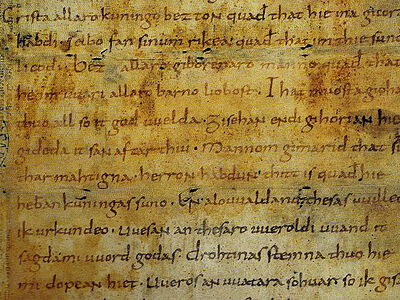 rista allaro kuningo bezton quað that hie ina gicoran
habdi selbo fan sinum rikea quað that im the suno
licodi bezt allaro giboranaro manno quað that
he im uuari allaro barno liobost That muosta gioha
thuo all so it god uuelda gisehan endi gihorian hie
gideda it san aftar thiu mannom gimarid that s
thar mahtigna herron habdun thitt is quað hie
hebankuningas suno En alouualdand theses uuilleo
ik urkundeo uuesan an thesaro uueroldi uuand it
sagda mi uuord godas drohtinas stemna thuo hie
mi dopean hiet uueros an uuatara so huar so ik gisa